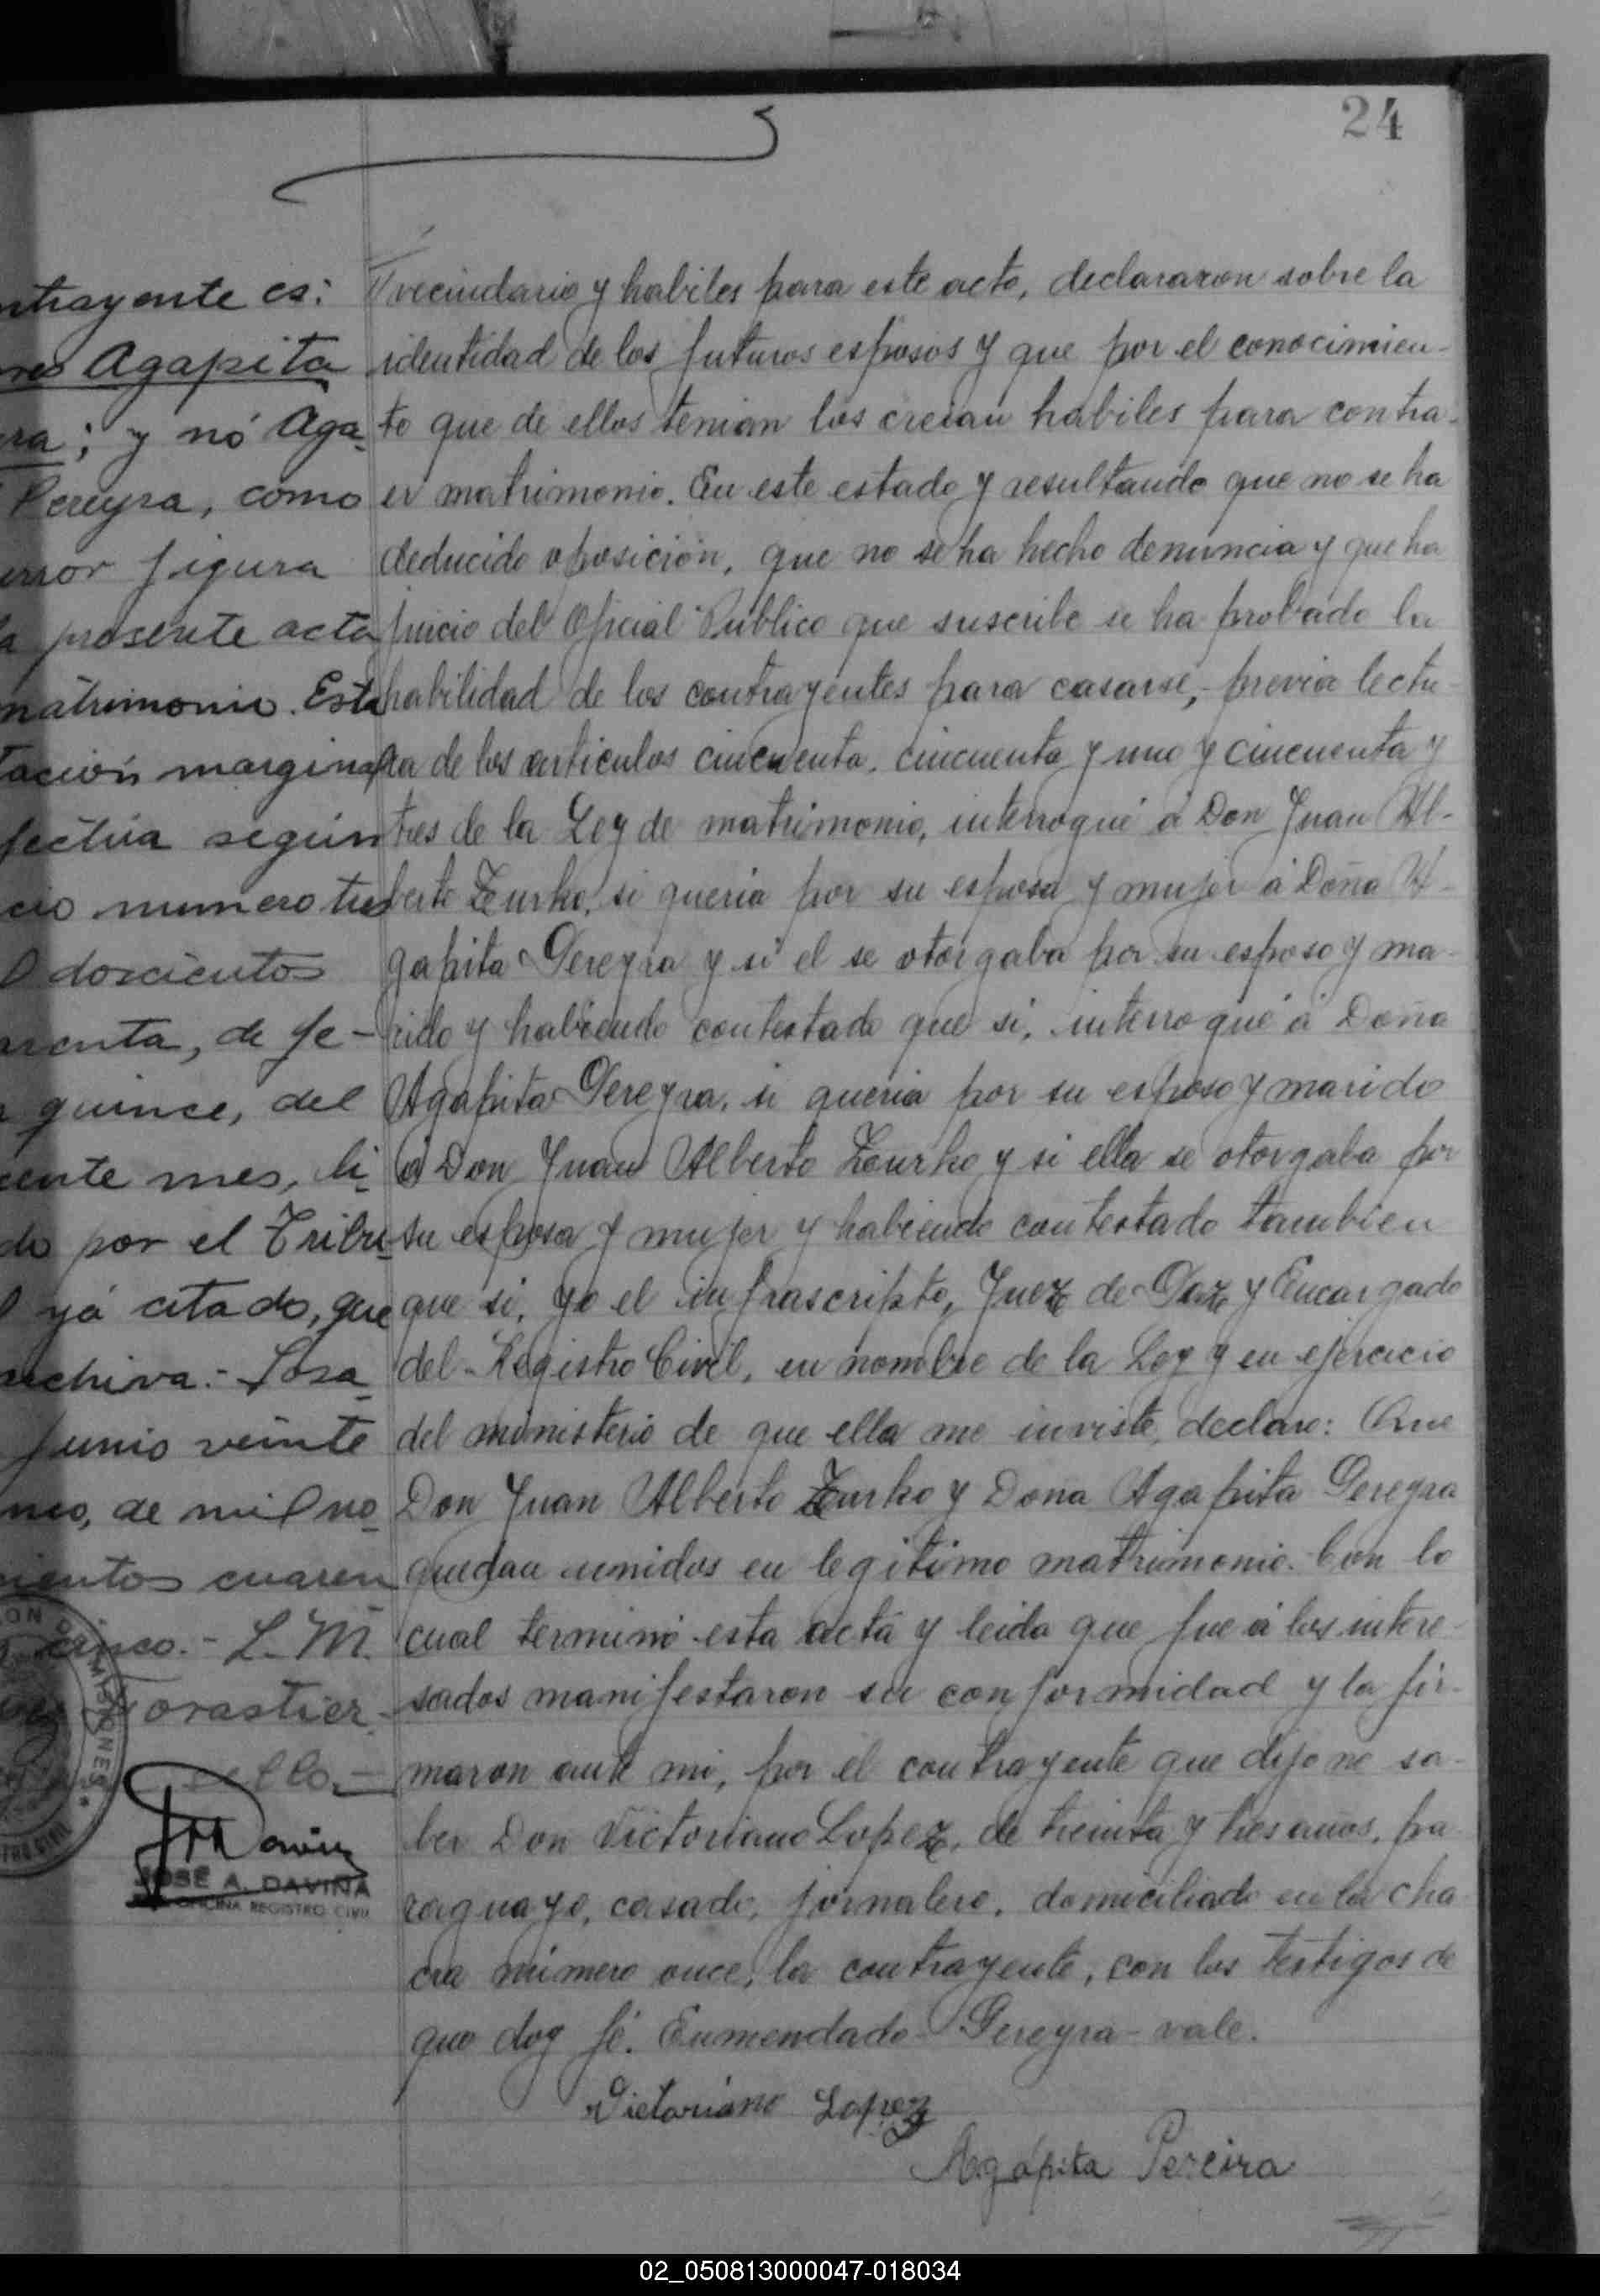 24
ntrayente es:
res Agapita
ra; y nó Aga-
Pereyra, como
error figura
a presente acta
matrimonio. Esta
tación marginal
fectúa según
cio numero tres
l doscientos
arenta, de fe-
a quince, del
iente mes, li-
do por el Tribu-
l yá citado, que
archiva:- Posa-
Junio veinte
nco, de mil no-
cientos cuaren
cinco.- L. M.
Forastier
sello.-
JOSÉ A. DAVIÑA
OFICINA REGISTRO CIVIL
MISIONES
vecindario y habiles para este acto, declararon sobre la
identidad de los futuros esposos y que por el conocimien-
to que de ellos tenian los creian habiles para contra-
er matrimonio. En este estado y resultando que no se ha
deducido oposición, que no se ha hecho denuncia y que ha
juicio del Oficial Público que suscribe se ha probado la
habilidad de los contrayentes para casarse,- previa lectu-
ra de los articulos cincuenta, cincuenta y uno y cincuenta y
tres de la Ley de matrimonio, interrogué á Don Juan Al-
berto Zurko, si queria por su esposa y mujer á Doña A-
gapita Pereyra y si el se otorgaba por su esposo y ma-
rido y habiendo contestado que si, interrogué á Doña
Agapita Pereyra, si queria por su esposo y marido
á Don Juan Alberto Zurko y si ella se otorgaba por
su esposa y mujer y habiendo contestado tambien
que si, yo el infrascripto, Juez de Paz y Encargado
del Registro Civil, en nombre de la Ley y en ejercicio
del ministerio de que ella me inviste, declaro: Que
Don Juan Alberto Zurko y Dona Agapita Pereyra
quedan unidos en legitimo matrimonio. Con lo
cual terminó esta acta y leida que fue á los intere-
sados manifestaron su conformidad y la fir-
maron ante mi, por el contrayente que dijo no sa-
ber Don Victoriano Lopez, de treinta y tres años, pa-
raguayo, casado, jornalero, domiciliado en la cha-
cra número once, la contrayente, con los testigos de
que doy fé. Enmendado- Pereyra- vale.
Victoriano Lopez
Agápita Pereira
02_050813000047-018034